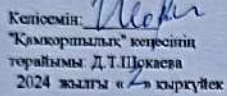 Келісемін:
"Қамқорлық" кеңесінің
төрайымы Д.Т.Шокаева
2024 жылғы « 2 » қыркүйек